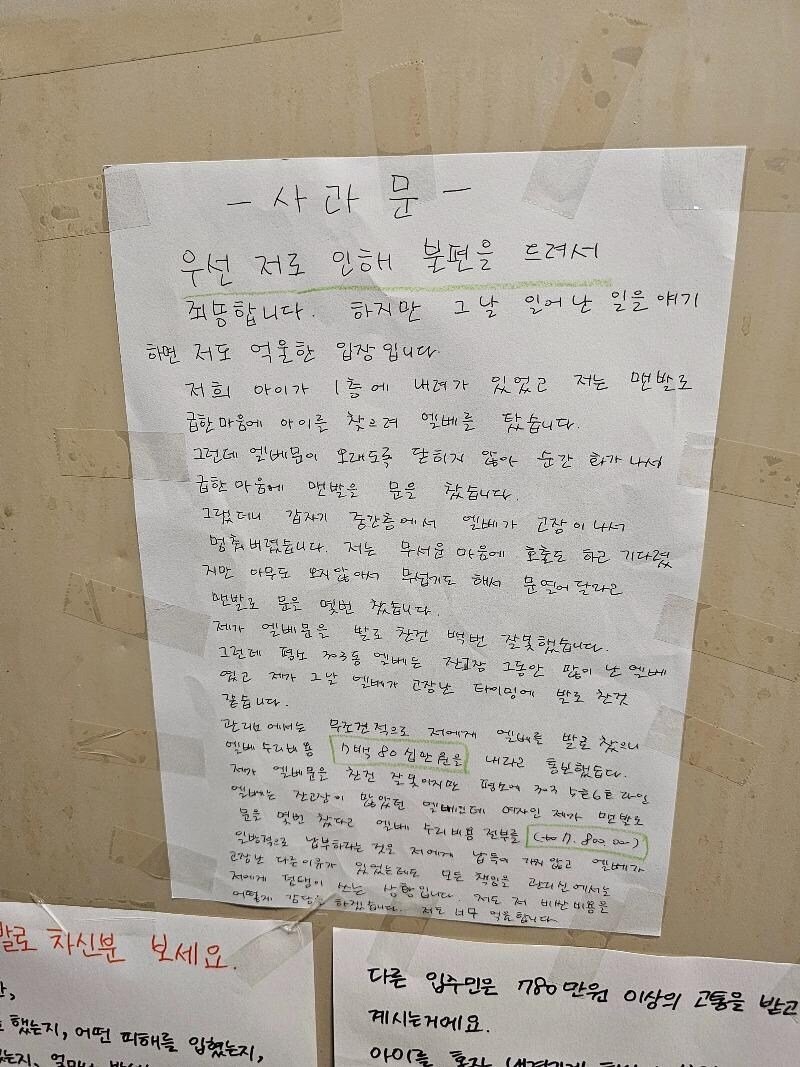 - 사 과 문 -
우선 저로 인해 불편을 드려서
죄송합니다. 하지만 그날 일어난 일을 얘기
하면 저도 억울한 입장입니다.
저희 아이가 1층에 내려가 있었고 저는 맨발로
급한마음에 아이를 찾으려 엘베를 탔습니다.
그런데 엘베문이 오래도록 닫히지 않아 순간 화가 나서
급한 마음에 맨발을 문을 찼습니다.
그랬더니 갑자기 중간층에서 엘베가 고장이 나서
멈춰버렸습니다. 저는 무서운 마음에 호출도 하고 기다렸
지만 아무도 오지않아서 무섭기도 해서 문열어 달라고
맨발로 문을 몇번 찼습니다.
제가 엘베문을 발로 찬건 백번 잘못했습니다.
그런데 평소 303동 엘베는 잔고장 그동안 많이 난 엘베
였고 제가 그날 엘베가 고장난 타이밍에 발로 찬것
같습니다.
관리소에서는 무조건적으로 저에게 엘베를 발로 찼으니
엘베 수리비용 7백 80 십만원을 내라고 통보했습니다.
제가 엘베문을 찬건 잘못이지만 평소에 303 5호6호 라인
엘베는 잔고장이 많았던 엘베인데 여자인 제가 맨발로
문을 몇번 찼다고 엘베 수리비용 전부를
일방적으로 납부하라는 것은 저에게 납득이 가지 않고 엘베가
고장난 다른이유가 있었는데도 모든 책임을 관리실에서는
저에게 덤탱이 쓰는 상황입니다. 저도 저 비싼비용을
어떻게 감당을 하겠습니다. 저도 너무 억울합니다
발로 차신분 보세요.
했는지, 어떤 피해를 입혔는지,
다른 입주민은 780만원 이상의 고통을 받고
계시는거에요.
아이를 혼자